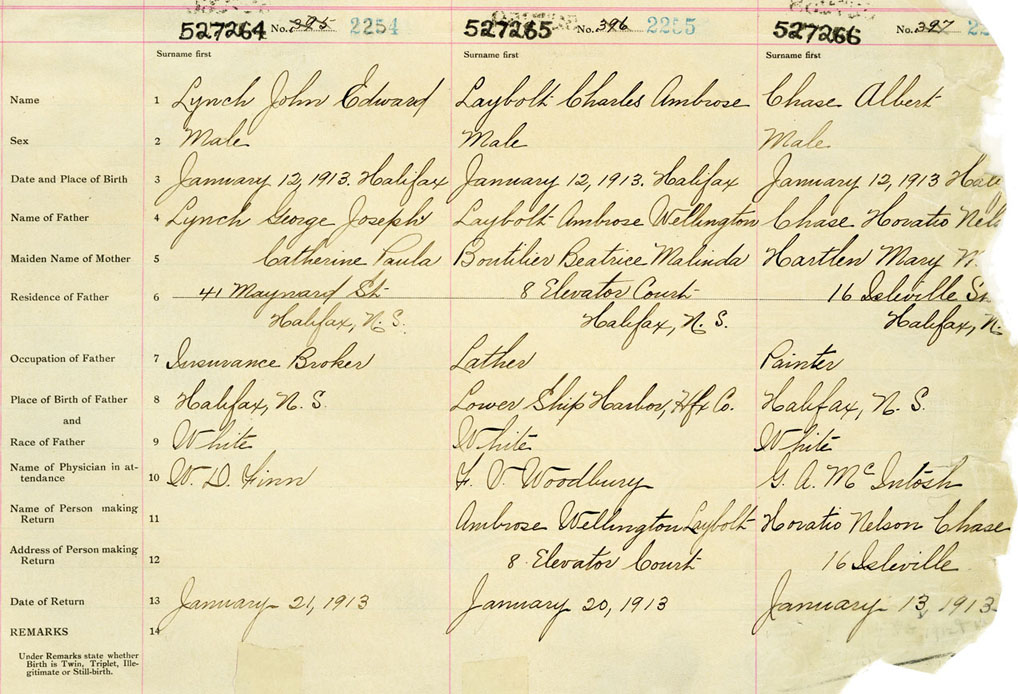 527264 No. 395 2254 527265 No. 396 2255 527266 No. 397 22
Surname first Surname first Surname first
Name 1 Lynch John Edward Laybolt Charles Ambrose Chase Albert
Sex 2 Male Male Male
Date and Place of Birth 3 January 12, 1913. Halifax January 12, 1913. Halifax January 12, 1913 Hali
Name of Father 4 Lynch George Joseph Laybolt Ambrose Wellington Chase Horatio Nels
Maiden Name of Mother 5 Catherine Paula Boutilier Beatrice Malinda Hartlen Mary
Residence of Father 6 41 Maynard St. 8 Elevator Court 16 Isleville St.
Halifax, N. S. Halifax, N. S. Halifax, N.
Occupation of Father 7 Insurance Broker Lather Painter
Place of Birth of Father 8 Halifax, N. S. Lower Ship Harbor, Hfx Co. Halifax, N. S.
and
Race of Father 9 White White White
Name of Physician in at-
tendance 10 W. D. Finn F. V. Woodbury G. A. McIntosh
Name of Person making
Return 11 Ambrose Wellington Laybolt Horatio Nelson Chase
Address of Person making
Return 12 8 Elevator Court 16 Isleville
Date of Return 13 January 21, 1913 January 20, 1913 January 13, 1913
REMARKS 14
Under Remarks state whether
Birth is Twin, Triplet, Ille-
gitimate or Still-birth.